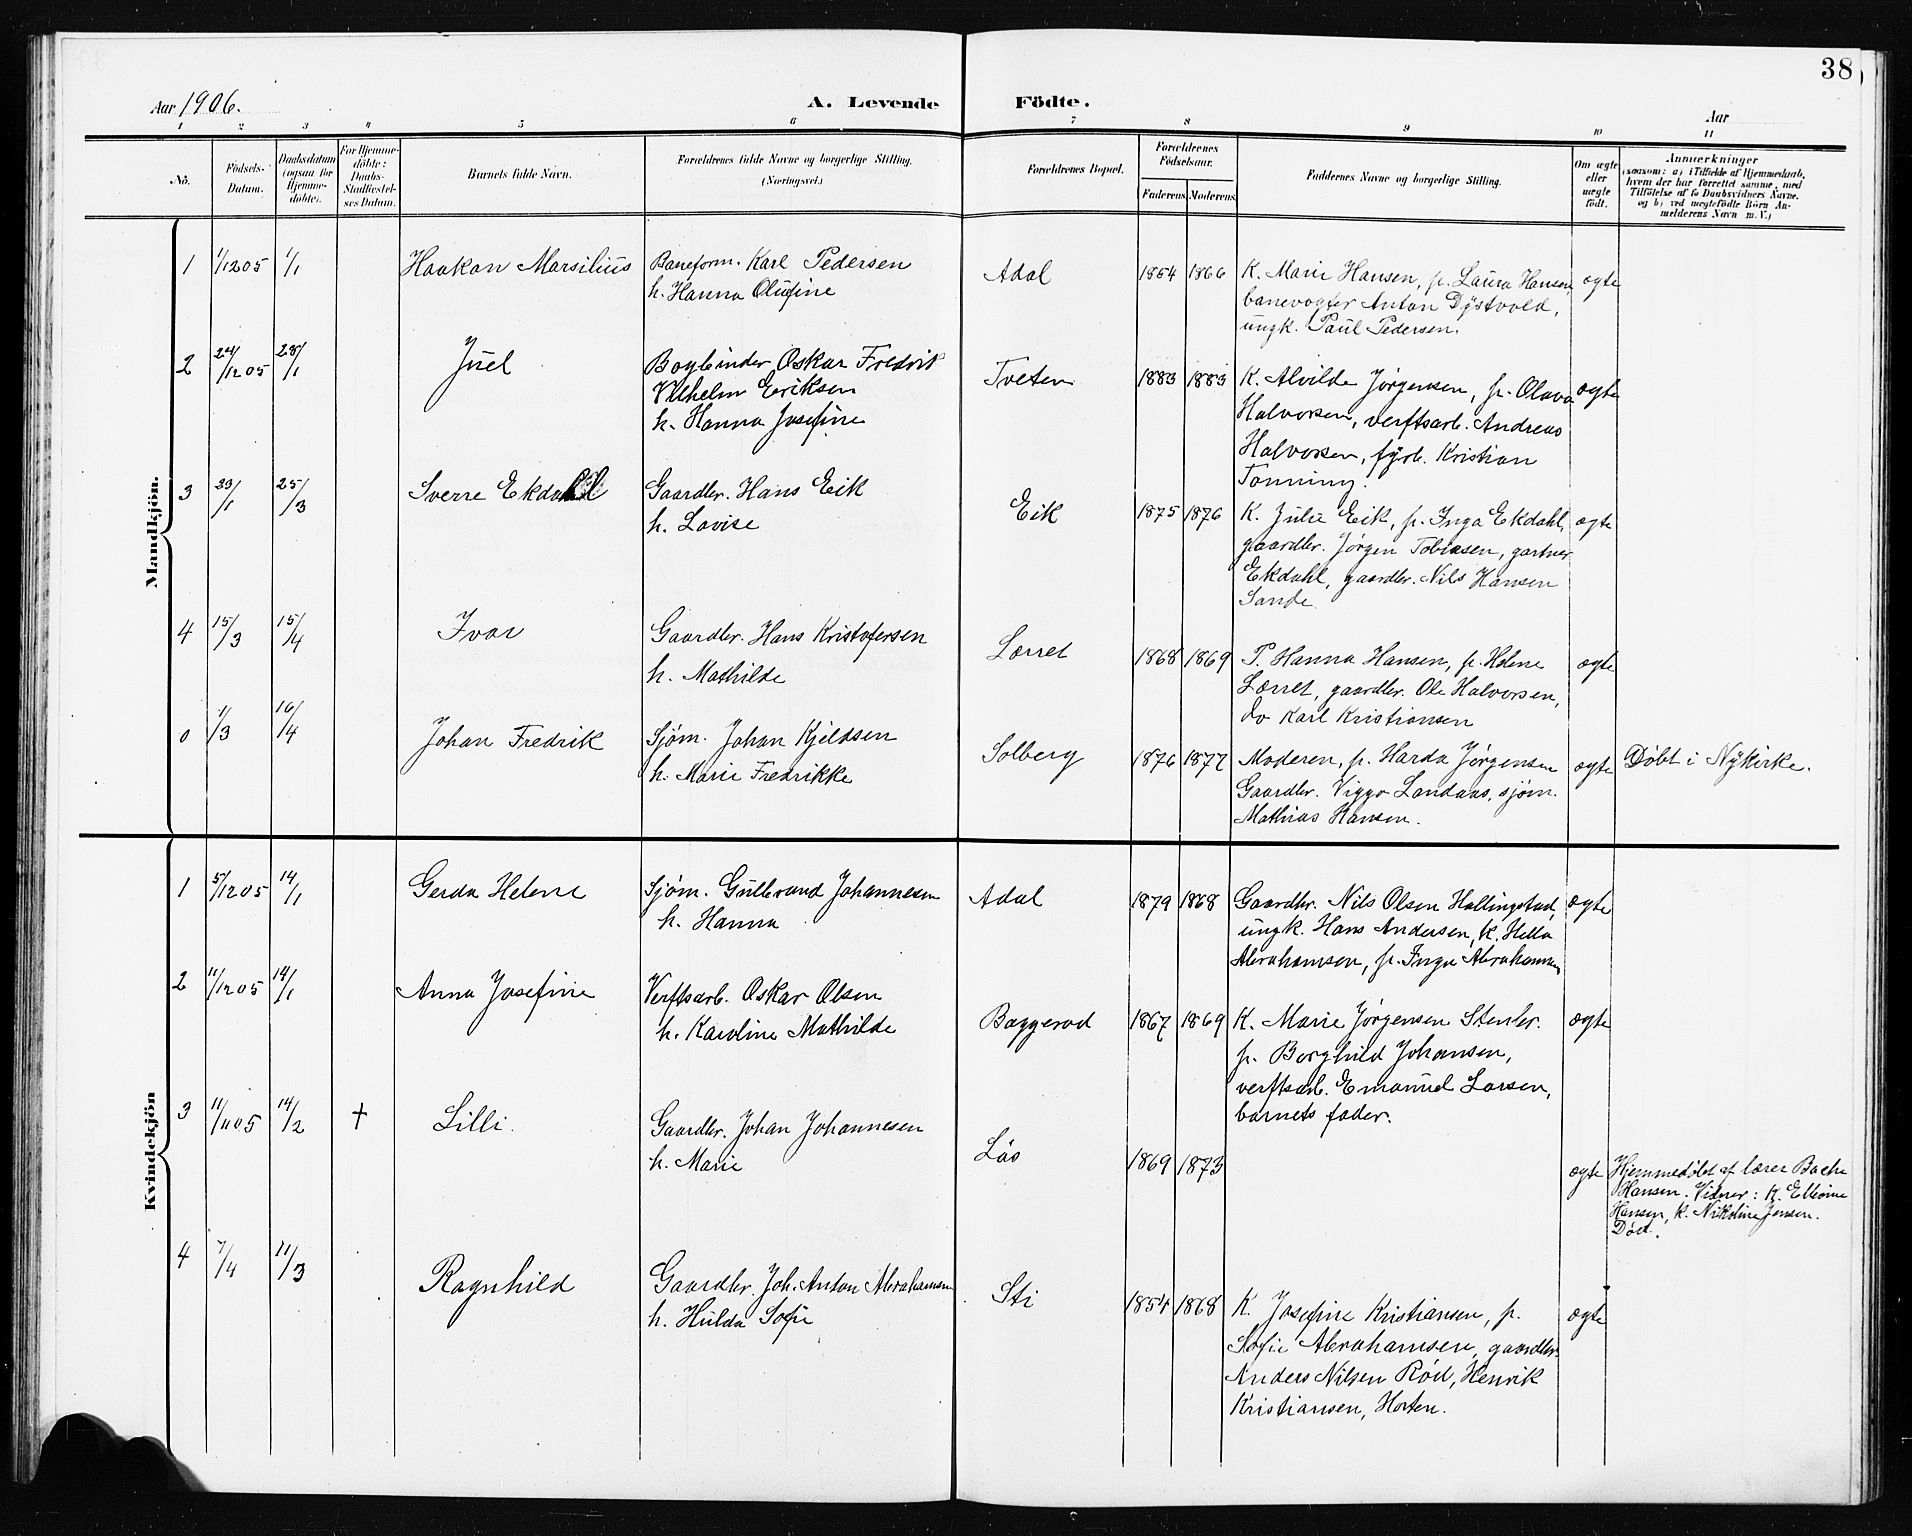 38
Aar 1906.
A. Levende Födte.
Aar
1 2 3 4 5 6 7 8 9 10 11
No.
Födsels-
Datum.
Daabsdatum
(ogsaa for
Hjemme-
döbte).
For Hjemme-
döbte:
Daabs-
Stadfæstel-
ses Datum.
Barnets fulde Navn.
Forældrenes fulde Navne og borgerlige Stilling.
(Næringsvei.)
Forældrenes Bopæl.
Forældrenes
Födselsaar.
Faderens Moderens
Faddernes Navne og borgerlige Stilling.
Om ægte
eller
uægte
født.
Anmærkninger
(saasom: a) i Tilfælde af Hjemmedaab,
hvem der har forrettet samme, med
Tilføielse af to Daabsvidners Navne.
og b) ved uægtefödte Börn An-
melderens Navn m. V.)
Mandkjön.
1 1/1205 1/1 Haakan Marsilius Baneform. Karl Pedersen
h. Hanna Olufine
Adal 1854 1866 K. Marie Hansen, p. Laura Hansen,
banevogter Anton Dystvold,
ungk. Paul Pedersen.
ægte
2 24/1205 28/1 Juel Bogbinder Oskar Fredrik
Vilhelm Eriksen
h. Hanna Josefine
Tveten 1883 1883 K. Alvilde Jørgensen, p. Olava
Halvorsen, verftsarb. Andreas
Halvorsen, fyrb. Kristian
Tonning.
ægte
3 23/1 25/3 Sverre Ekdahl Gaardbr. Hans Eik
h. Lovise
Eik 1875 1876 K. Julie Eik, p. Inga Ekdahl,
gaardbr. Jørgen Tobiasen, gartner
Ekdahl, gaardbr. Nils Hansen
Sande
ægte
4 15/3 15/4 Ivar Gaardbr. Hans Kristofersen
h. Mathilde
Lørret 1868 1869 P. Hanna Hansen, p. Helene
Lørret, gaardbr. Ole Halvorsen,
do Karl Kristiansen
ægte
0 1/3 16/4 Johan Fredrik Sjøm. Johan Kjeldsen
h. Marie Fredrikke
Solberg 1876 1877 Moderen, p. Harda Jørgensen
Gaardbr. Viggo Landaas, sjøm.
Mathias Hansen.
ægte Døbt i Nykirke.
Kvindekjön
1 5/1205 14/1 Gerda Helene Sjøm. Gulbrand Johannesen
h. Hanna
Adal 1879 1868 Gaardbr. Nils Olsen Hallingstad,
ungk. Hans Andersen, K. Hella
Abrahamsen, p. Inga Abrahamsen
ægte
2 11/1205 14/1 Anna Josefine Verftsarb. Oskar Olsen
h. Karoline Mathilde
Baggerød 1867 1869 K. Marie Jørgensen Stenbr.
p. Borghild Johansen,
verftsarb. Emanuel Larsen,
barnets fader.
ægte
3 11/1105 14/2 † Lilli. Gaardbr. Johan Johannesen
h. Marie
Lås 1869 1873
ægte Hjemmedøbt af lærer Bache
Hansen. Vidner: K.
Hansen, K. Nikoline Jensen.
Død.
4 7/4 11/3 Ragnhild Gaardbr. Joh. Anton Abrahamsen
h. Hulda Sofie
Sti 1854 1868 K. Josefine Kristiansen, p.
Sofie Abrahamsen, gaardbr.
Anders Nilsen Rød, Henrik
Kristiansen, Horten.
ægte